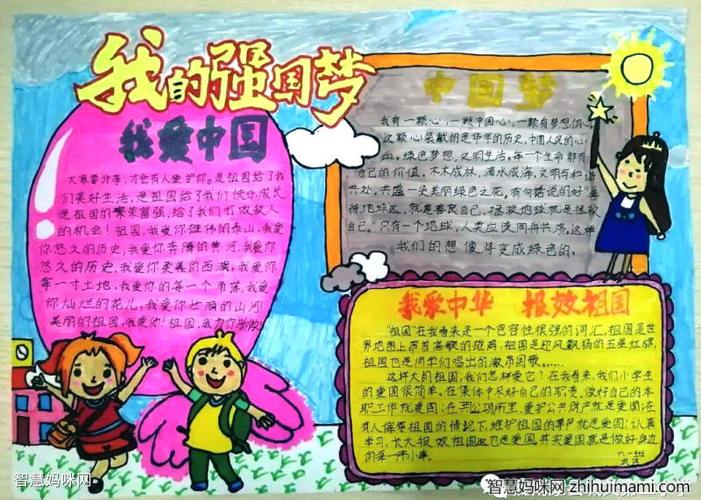 我的强国梦
我爱中国
大家要分享,才会有人爱护你。是祖国给了我
们美好生活,是祖国给了我们快乐成长
是祖国的繁荣富强,给了我们打败敌人
的机会!祖国,我爱你雄伟的泰山,我爱
你悠久的历史,我爱你奔腾的黄河,我爱你
悠久的历史,我爱你柔美的西湖,我爱你
每一寸土地,我爱你的每一个角落,我爱
你灿烂的花儿,我爱你壮丽的山河!
美丽的祖国,我爱你!祖国,我为你骄傲!
中国梦
我有一颗心,一颗中国心,一颗有梦想的心,
这颗心装载的是华年的历史,中国人民的心
血,绿色梦想,文明生活,每一个生命都有
自己的价值,木木成林,滴水成海,文明与和谐
共处,共盛一朵美丽绿色之花,有句话说的好"善
待地球这,就是善民自己,拯救地球就是拯救
自己。"只有一个地球,人类应该同舟共济,这样
我们的想像将变成绿色的。
我爱中华 报效祖国
"祖国"在我看来是一个包容性很强的词汇,祖国是世
界地图上昂首高歌的雄鸡,祖国是迎风飘扬的五星红旗,
祖国也是同学们唱出的激昂国歌……
这样大的祖国,我们怎样爱它?在我看来,我们小学生
的爱国很简单。在集体中尽好自己的职责,做好自己的本
职工作就爱国;在公共场所里,爱护公共财产就是爱国;在
有人侮辱祖国的情况下,维护祖国的尊严就是爱国;认真
学习,长大报效祖国也是爱国。其实爱国就是做好身边
的每一件小事。
六一班
智慧妈咪网
智慧妈咪网 zhihuimami.com